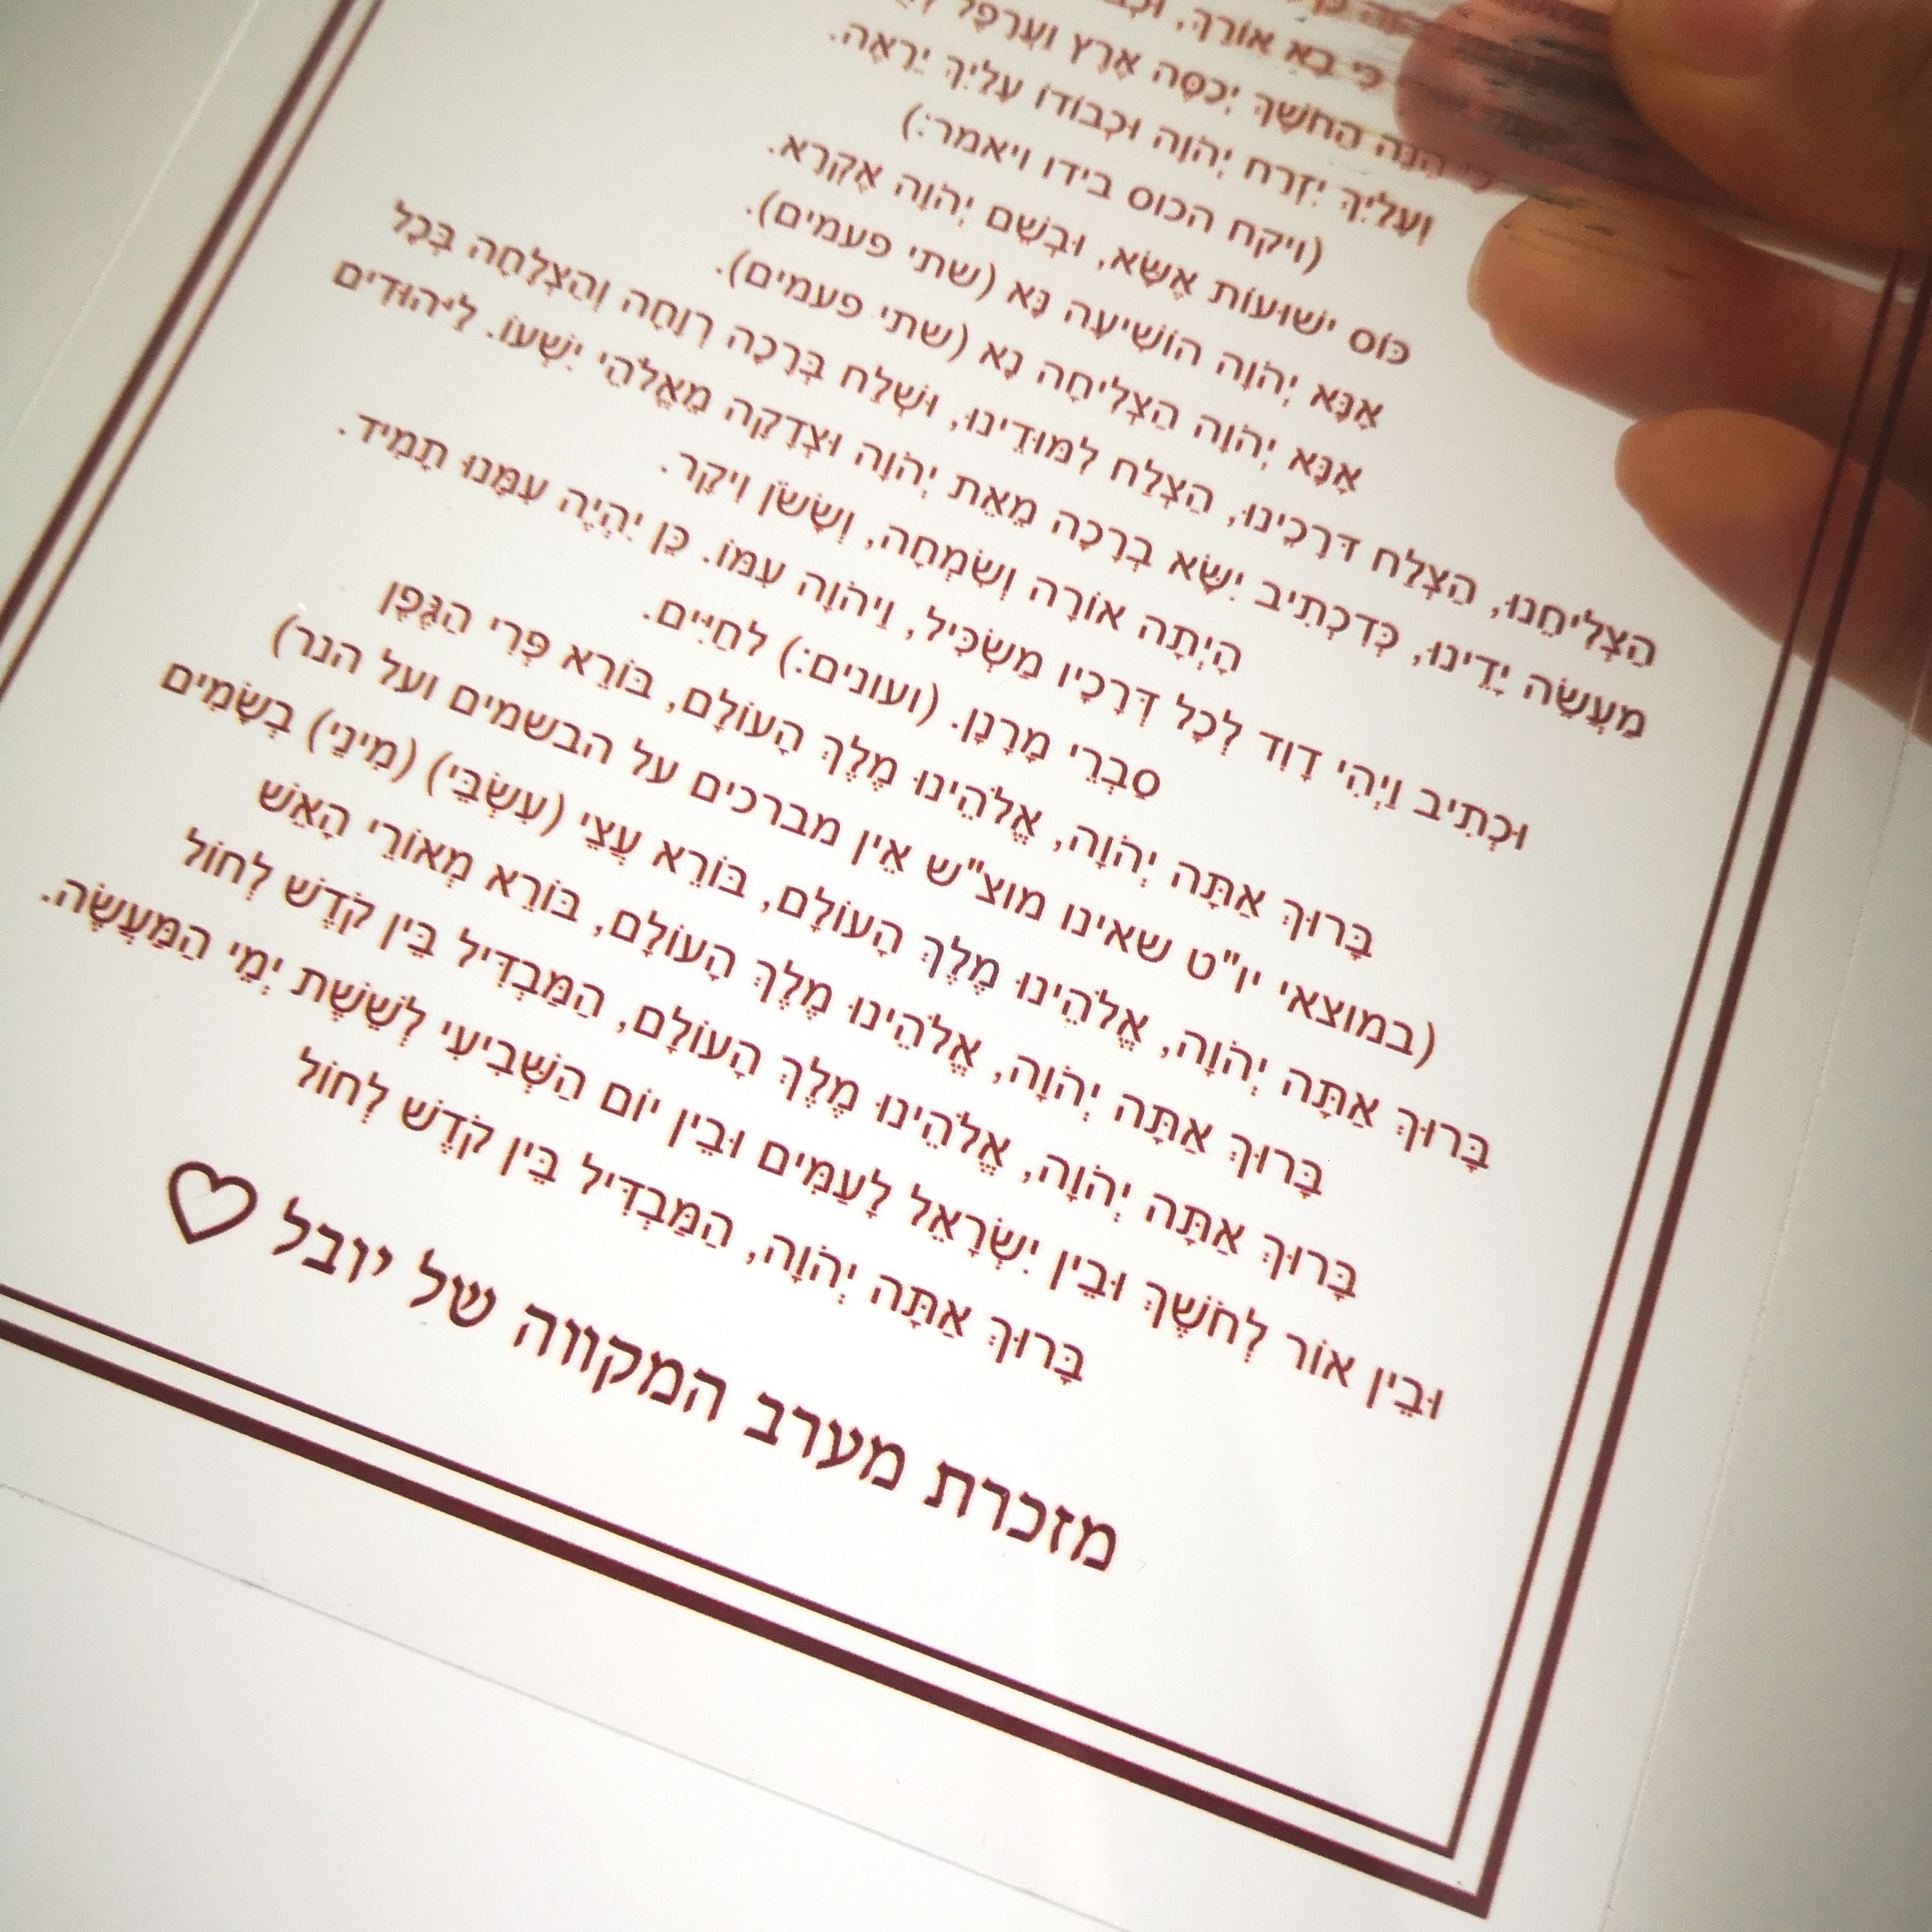 כִּי בָא אוֹרֵךְ,
כִּי הִנֵּה הַחֹשֶׁךְ יְכַסֶּה אֶרֶץ וַעֲרָפֶל
וְעָלַיִךְ יִזְרַח יְהֹוָה וּכְבוֹדוֹ עָלַיִךְ יֵרָאֶה.
(ויקח הכוס בידו ויאמר:)
כּוֹס יְשׁוּעוֹת אֶשָּׂא, וּבְשֵׁם יְהֹוָה אֶקְרָא.
אָנָּא יְהֹוָה הוֹשִׁיעָה נָּא (שתי פעמים).
אָנָּא יְהֹוָה הַצְלִיחָה נָא (שתי פעמים).
הַצְלִיחֵנוּ, הַצְלַח דְּרָכֵינוּ, הַצְלַח לִמּוּדֵינוּ, וּשְׁלַח בְּרָכָה רְוָחָה וְהַצְלָחָה בְּכָל
מַעֲשֵׂה יָדֵינוּ, כְּדִכְתִיב יִשָּׂא בְרָכָה מֵאֵת יְהֹוָה וּצְדָקָה מֵאֱלֹהֵי יִשְׁעוֹ. לַיְּהוּדִים
הָיְתָה אוֹרָה וְשִׂמְחָה, וְשָׂשֹׂן וִיקָר.
וּכְתִיב וַיְהִי דָוִד לְכָל דְּרָכָיו מַשְׂכִּיל, וַיהֹוָה עִמּוֹ. כֵּן יִהְיֶה עִמָּנוּ תָמִיד.
סַבְרֵי מָרָנָן. (ועונים:) לחַיִּים.
בָּרוּךְ אַתָּה יְהֹוָה, אֱלֹהֵינוּ מֶלֶךְ הָעוֹלָם, בּוֹרֵא פְּרִי הַגֶּפֶן
(במוצאי יו"ט שאינו מוצ"ש אין מברכים על הבשמים ועל הנר)
בָּרוּךְ אַתָּה יְהֹוָה, אֱלֹהֵינוּ מֶלֶךְ הָעוֹלָם, בּוֹרֵא עֲצֵי (עִשְׂבֵּי) (מִינֵי) בְשָׂמִים
בָּרוּךְ אַתָּה יְהֹוָה, אֱלֹהֵינוּ מֶלֶךְ הָעוֹלָם, בּוֹרֵא מְאוֹרֵי הָאֵשׁ
בָּרוּךְ אַתָּה יְהֹוָה, אֱלֹהֵינוּ מֶלֶךְ הָעוֹלָם, הַמַּבְדִּיל בֵּין קֹדֶשׁ לְחוֹל
וּבֵין אוֹר לְחֹשֶׁךְ וּבֵין יִשְׂרָאֵל לָעַמִּים וּבֵין יוֹם הַשְּׁבִיעִי לְשֵׁשֶׁת יְמֵי הַמַּעֲשֶׂה.
בָּרוּךְ אַתָּה יְהֹוָה, הַמַּבְדִּיל בֵּין קֹדֶשׁ לְחוֹל
מזכרת מערב המקווה של יובל ♡